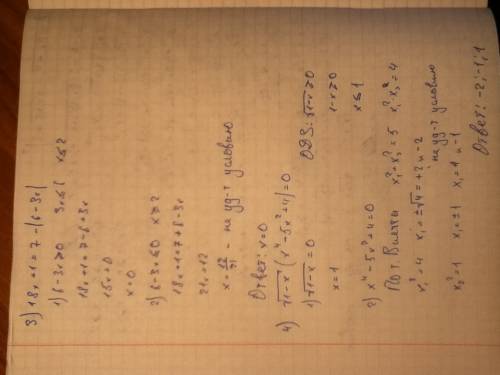 3) 18x+1=7-|6-3x|
1) 6-3x≥0 3x≤6 x≤2
18x+1=7-6+3x
15x=0
x=0
2) 6-3x≤0 x≥2
18x+1=7+6-3x
21x=12
x=12/21 - не уд-т условию
Ответ: x=0
4) √1-x (x⁴-5x²+4)=0
1) √1-x=0 ОДЗ: √1-x≥0
x=1 1-x≥0
x≤1
2) x⁴-5x²+4=0
По т. Виета x₁²+x₂²=5 x₁²·x₂²=4
x₁²=4 x₁=±√4=+2 и -2
не уд-т условию
x₂²=1 x₁=±1 x₁=1 и -1
Ответ: -2;-1;1